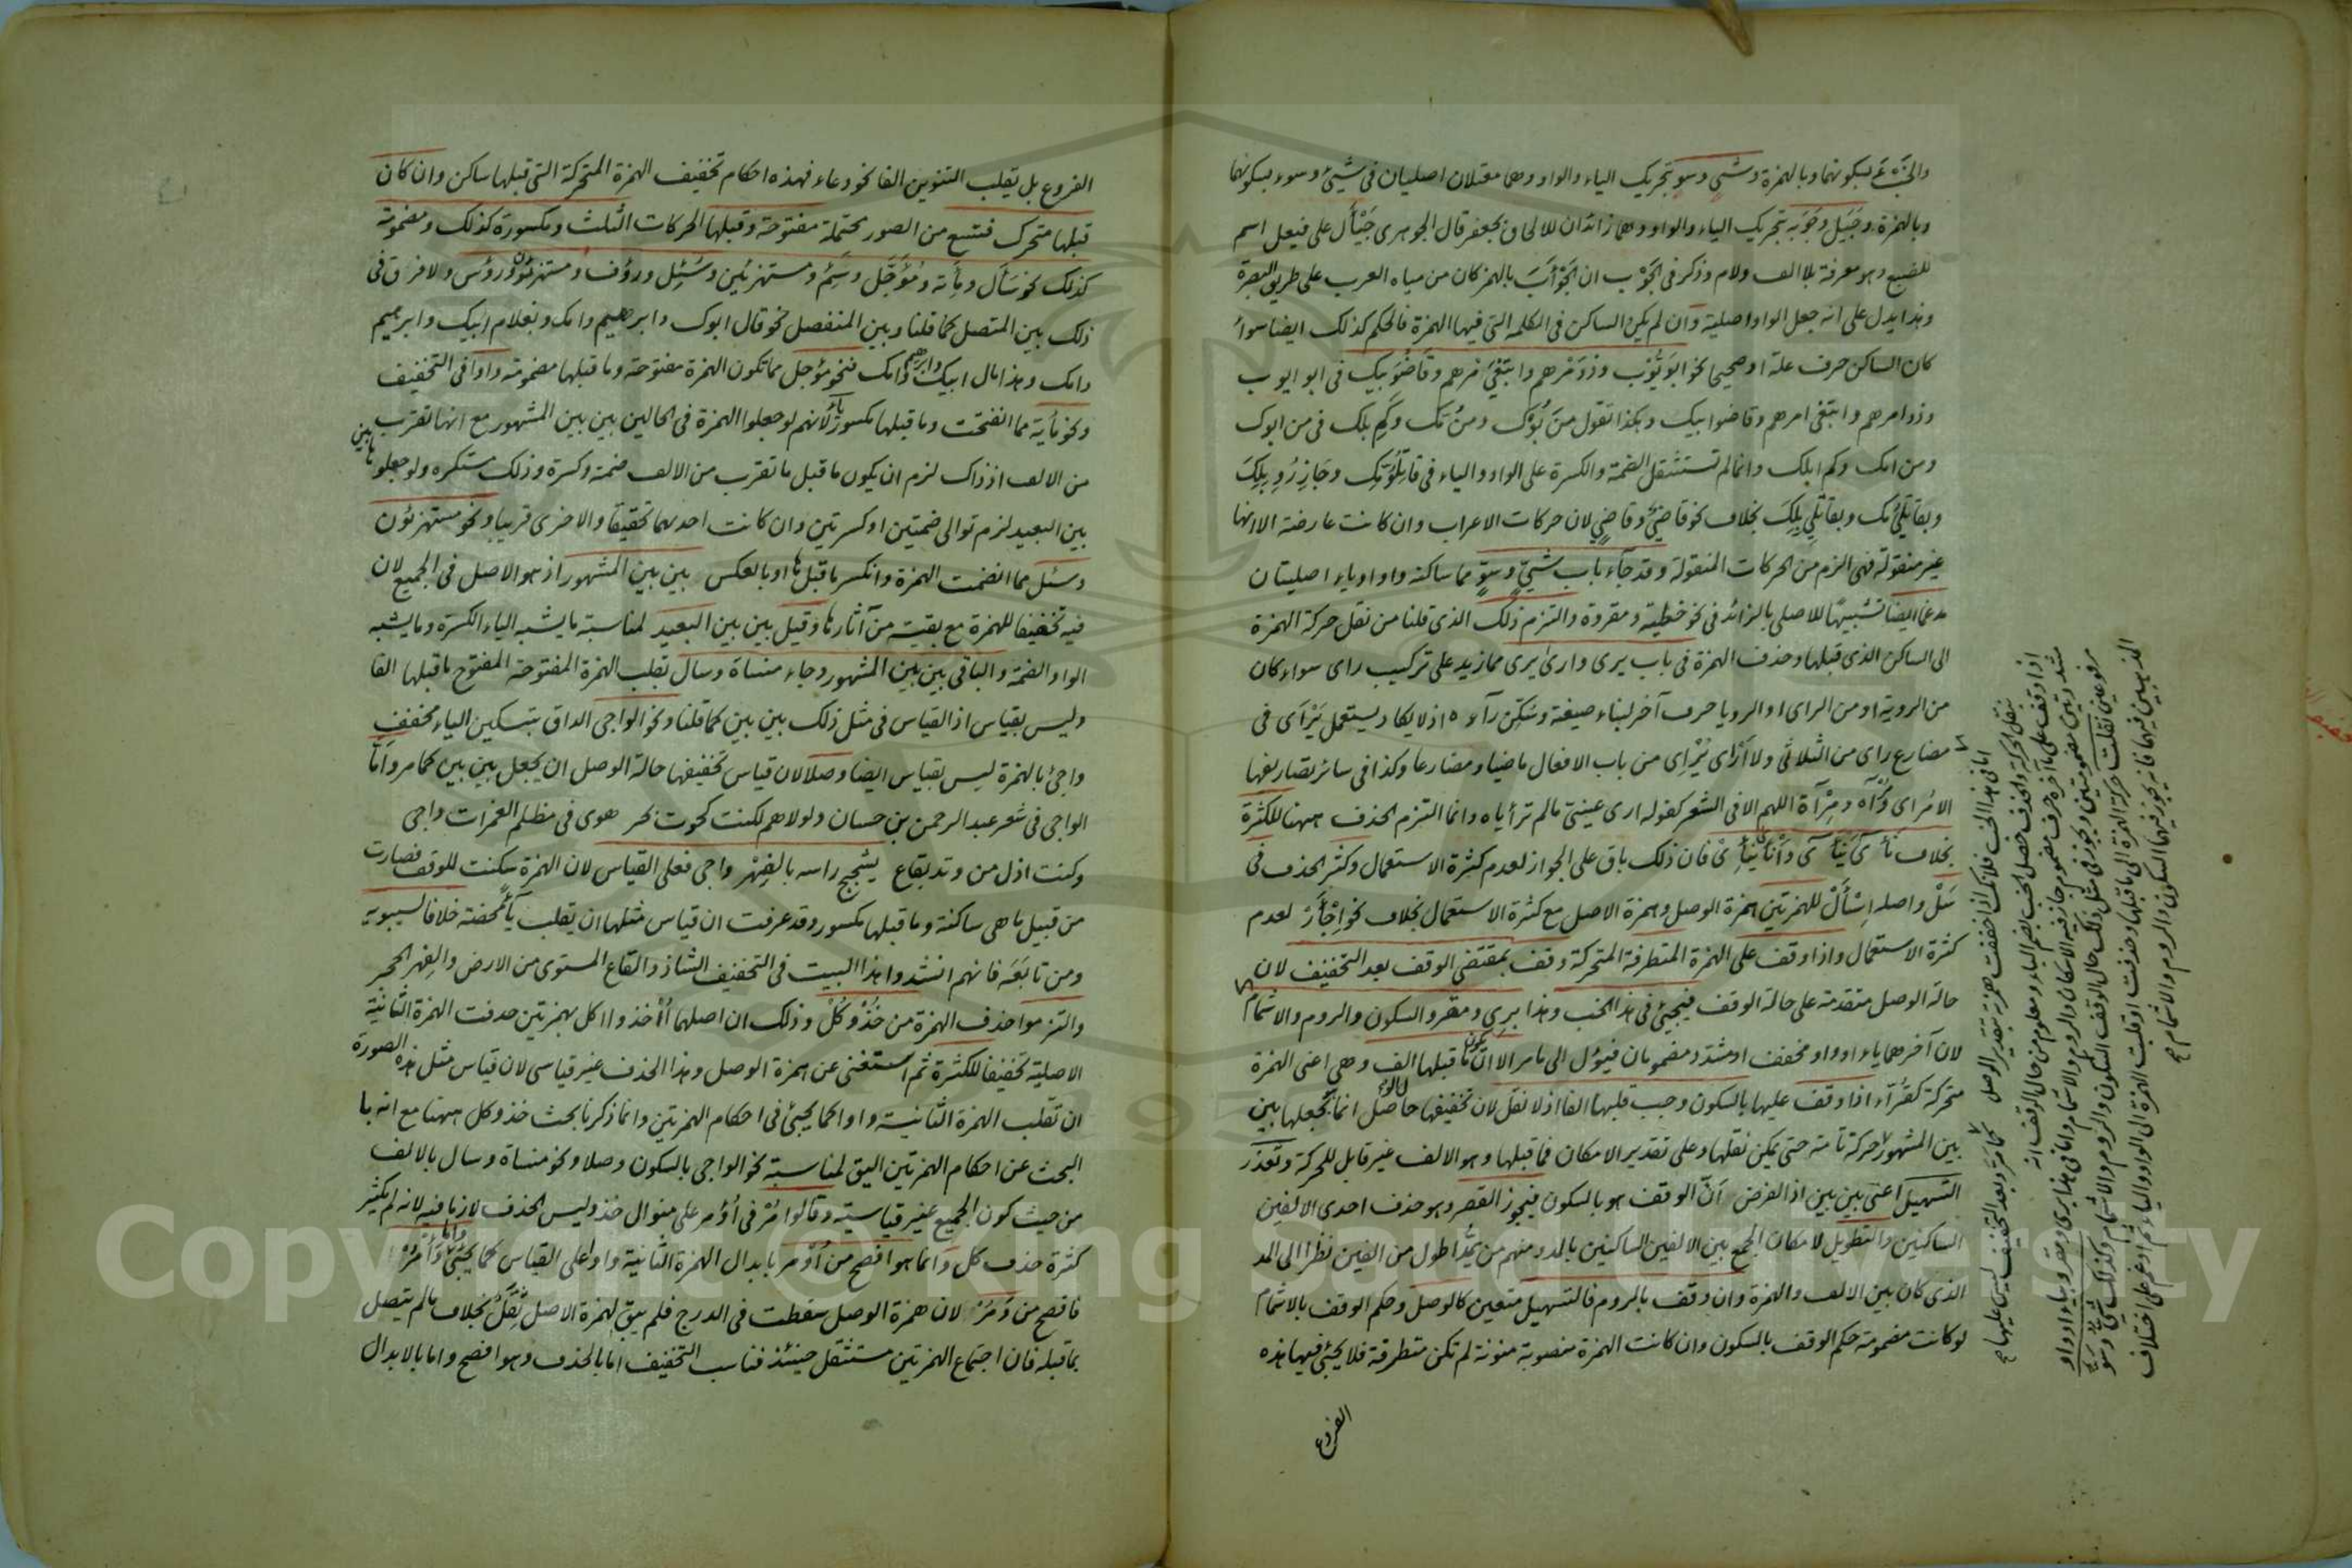 والخبء بسكونهما وبالهمزة وشي وسو بتحريك الياء والواو وهما معتلان اصليان في شيئ وسوء بسكونهما
وبالهمزة وجيل وجوبة بتحريك الياء والواو وهما زائدان للالحاق بجعفر قال الجوهري جيأل على فيعل اسم
للضبع وهو معرفة بلا الف ولام وذكر في الجوب ان الجوأب بالهمز كان من مياه العرب على طريق البصرة
وهذا يدل على انه جعل الواو اصلية وان لم يكن الساكن في الكلمة التي فيها الهمزة فالحكم كذلك ايضا سواء
كان الساكن حرف علة او صحيحا نحو ابو يوب وذو مرهم وابتغي مرهم وقاضو بيك في ابو ايوب
وذو امرهم وابتغى امرهم وقاضوا بيك وهكذا تقول من بوك ومن مك وكم بلك في من ابوك
ومن امك وكم ابلك وانما لم تستثقل الضمة والكسرة على الواو والياء في قاتلو مك وجازرو بلك
وبقاتلي مك وبقاتلي بلك بخلاف نحو قاضي وقاضي لان حركات الاعراب وان كانت عارضة الا انها
غير منقولة فهي الزم من الحركات المنقولة وقد جاء باب شيّ وسوّ مما ساكنه واو او ياء اصليتان
مدغما ايضا تشبيها للاصلي بالزائد في نحو خطية ومقروة والتزم ذلك الذي قلنا من نقل حركة الهمزة
الى الساكن الذي قبلها وحذف الهمزة في باب يرى وارى يرى مما زيد على تركيب راى سواء كان
من الروية او من الراى او الرويا حرف آخر لبناء صيغة وسكن رآءه اذ لا يكاد يستعمل يرأى في
مضارع راى من الثلاثي ولا أرأى يرئى من باب الافعال ماضيا ومضارعا وكذا في سائر تصاريفها
الا مراى ومرآة ومرآة اللهم الا في الشعر كقوله ارى عيني ما لم ترأياه وانما التزم الحذف ههنا للكثرة
بخلاف نأى ينأى وأنأى ينئى فان ذلك باق على الجواز لعدم كثرة الاستعمال وكثر الحذف في
سل واصله اسأل للهمزتين همزة الوصل وهمزة الاصل مع كثرة الاستعمال بخلاف نحو اجأر لعدم
كثرة الاستعمال واذا وقف على الهمزة المتطرفة المتحركة وقف بمقتضى الوقف بعد التخفيف لان
حالة الوصل متقدمة على حالة الوقف فيجيئ في هذا الخب وهذا بري ومقرو السكون والروم والاشمام
لان آخرهما ياء او واو مخفف او مشدد مضمومان فيؤل الى ما مر الا ان يكون ما قبلها الف وهي اعني الهمزة
متحركة كقراء اذا وقف عليها بالسكون وجب قلبها الفا اذ لا نقل لان تخفيفها حاصل انما بجعلها بين
بين المشهور لا حركة تامة حتى يمكن نقلها وعلى تقدير الامكان فما قبلها وهو الالف غير قابل للحركة وتعذر
التسهيل اعني بين بين اذ الغرض ان الوقف هو بالسكون فيجوز القصر وهو حذف احدى الالفين
الساكنين والتطويل لامكان الجمع بين الالفين الساكنين بالمد ومنهم من يمد اطول من الفين نظرا الى المد
الذي كان بين الالف والهمزة وان وقف بالروم فالتسهيل متعين كالوصل وحكم الوقف بالاشمام
لو كانت مضمومة حكم الوقف بالسكون وان كانت الهمزة منصوبة منونة لم تكن متطرفة فلا يجيئ فيها هذه
الفروع
الفروع بل يقلب التنوين الفا نحو دعاء فهذه احكام تخفيف الهمزة المتحركة التي قبلها ساكن وان كان
قبلها متحرك فتسع من الصور محتملة مفتوحة وقبلها الحركات الثلث ومكسورة كذلك ومضمومة
كذلك نحو سأل ومأنة ومؤجل وسئم ومستهزئين وسئل ورؤف ومستهزئون ورؤس ولا فرق في
ذلك بين المتصل كما قلنا وبين المنفصل نحو قال ابوك وابرهيم وامك وبغلام ابيك وابرهيم
وامك وهذا مال ابيك وابرهيم وامك فنحو مؤجل مما تكون الهمزة مفتوحة وما قبلها مضمومة واوا في التخفيف
ونحو مأية مما انفتحت وما قبلها مكسور ياء لانهم لو جعلوا الهمزة في الحالين بين بين المشهور مع انها تقرب
من الالف اذ ذاك لزم ان يكون ما قبل ما تقرب من الالف ضمة وكسرة وذلك مستكره ولو جعلوها بين
بين البعيد لزم توالى ضمتين او كسرتين وان كانت احدهما تحقيقا والاخرى قريبا ونحو مستهزئون
وسئل مما انضمت الهمزة وانكسر ما قبلها او بالعكس بين بين المشهور اذ هو الاصل في الجميع لان
فيه تخفيفا للهمزة مع بقية من آثارها وقيل بين بين البعيد لمناسبة ما يشبه الياء الكسرة وما يشبه
الواو الضمة والباقي بين بين المشهور وجاء منساة وسال بقلب الهمزة المفتوحة المفتوح ما قبلها الفا
وليس بقياس اذ القياس في مثل ذلك بين بين كما قلنا ونحو الواجي الداق بتسكين الياء مخفف
واجئ بالهمزة ليس بقياس ايضا وصلا لان قياس تخفيفها حالة الوصل ان يجعل بين بين كما مر واما
الواجي في شعر عبد الرحمن بن حسان ولولاهم لكنت كحوت بحر هوى في مظلم الغمرات داجي
وكنت اذل من وتد بقاع يشجج راسه بالفهر واجي فعلى القياس لان الهمزة سكنت للوقف فصارت
من قبيل ما هي ساكنة وما قبلها مكسور وقد عرفت ان قياس مثلها ان يقلب يآء محضة خلافا لسيبويه
ومن تابعه فانهم انشدوا هذا البيت في التخفيف الشاذ والقاع المستوى من الارض والفهر الحجر
والتزموا حذف الهمزة من خذ وكل وذلك ان اصلهما أأخذ وأاكل بهمزتين حدفت الهمزة الثانية
الاصلية تخفيفا للكثرة ثم استغنى عن همزة الوصل وهذا الحذف غير قياسي لان قياس مثل هذه الصورة
ان تقلب الهمزة الثانية واوا كما يجيئ في احكام الهمزتين وانما ذكرنا بحث خذ وكل ههنا مع انه با
البحث عن احكام الهمزتين اليق لمناسبة نحو الواجي بالسكون وصلا ونحو منساة وسال بالالف
من حيث كون الجميع غير قياسية وقالوا مر في اؤمر على منوال خذ وليس الحذف لازما فيه لانه لم يكثر
كثرة حذف كل وانما هو افصح من اؤمر بابدال الهمزة الثانية واوا على القياس كما يجيئ واما وأمر
فافصح من ومر لان همزة الوصل سقطت في الدرج فلم يبق لهمزة الاصل ثقل بخلاف ما لم يتصل
بما قبله فان اجتماع الهمزتين مستثقل حينئذ فناسب التخفيف اما بالحذف وهو افصح واما بالابدال
Copyright © King Saud University